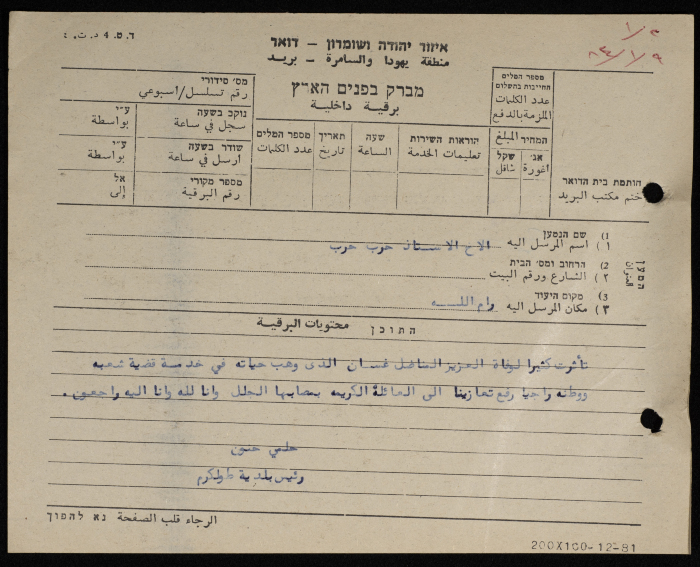 ד.ט. 4 ד.ת.
איזור יהודה ושומרון – דואר
منطقة يهودا والسامرة – بريد
٨٤/١/٩
מברק בפנים הארץ
برقية داخلية
מס׳ סידורי
رقم تسلسل/اسبوعي
נוקב בשעה
سجل في ساعة
ע״י
بواسطة
שודר בשעה
ارسل في ساعة
ע״י
بواسطة
מספר מקורי
رقم البرقية
אל
إلى
מספר המלים
عدد الكلمات
תאריך
تاريخ
שעה
الساعة
הוראות השירות
تعليمات الخدمة
מספר המלים
החייבות בתשלום
عدد الكلمات
الملزمة بالدفع
המחיר المبلغ
שקל
شاقل
אג׳
اغورة
חותמת בית הדואר
ختم مكتب البريد
המען
العنوان
1) שם הנמען
١) اسم المرسل اليه الاخ الاستاذ حرب حرب
2) הרחוב ומס׳ הבית
٢) الشارع ورقم البيت
3) מקום היעוד
٣) مكان المرسل اليه رام الله
התוכן محتويات البرقية
تأثرت كثيرا لوفاة العزيز المناضل غسان الذى وهب حياته في خدمة قضية شعبه
ووطنه راجيا رفع تعازينا الى العائلة الكريمه بمصابها الجلل وانا لله وانا اليه راجعون.
حلمي حنون
رئيس بلدية طولكرم
الرجاء قلب الصفحة נא להפוך
200X100-12-81